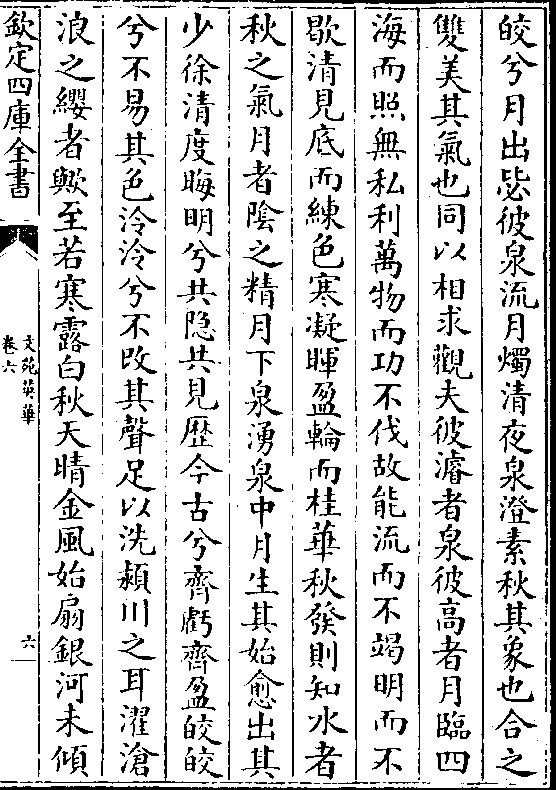 皎兮月出毖彼泉流月燭清夜泉澄素秋其象也合之
雙美其氣也同以相求觀夫彼濬者泉彼高者月臨四
海而照無私利萬物而功不伐故能流而不竭明而不
歇清見底而練色寒凝暉盈輪而桂華秋發則知水者
秋之氣月者陰之精月下泉湧泉中月生其始愈出其
少徐清度晦明兮共隐共見歴今古兮齊虧齊盈皎皎
兮不易其色泠泠兮不改其聲足以洗潁川之耳濯滄
浪之纓者歟至若寒露白秋天晴金風始扇銀河未傾
欽定四庫全書
文苑英華
卷六
六